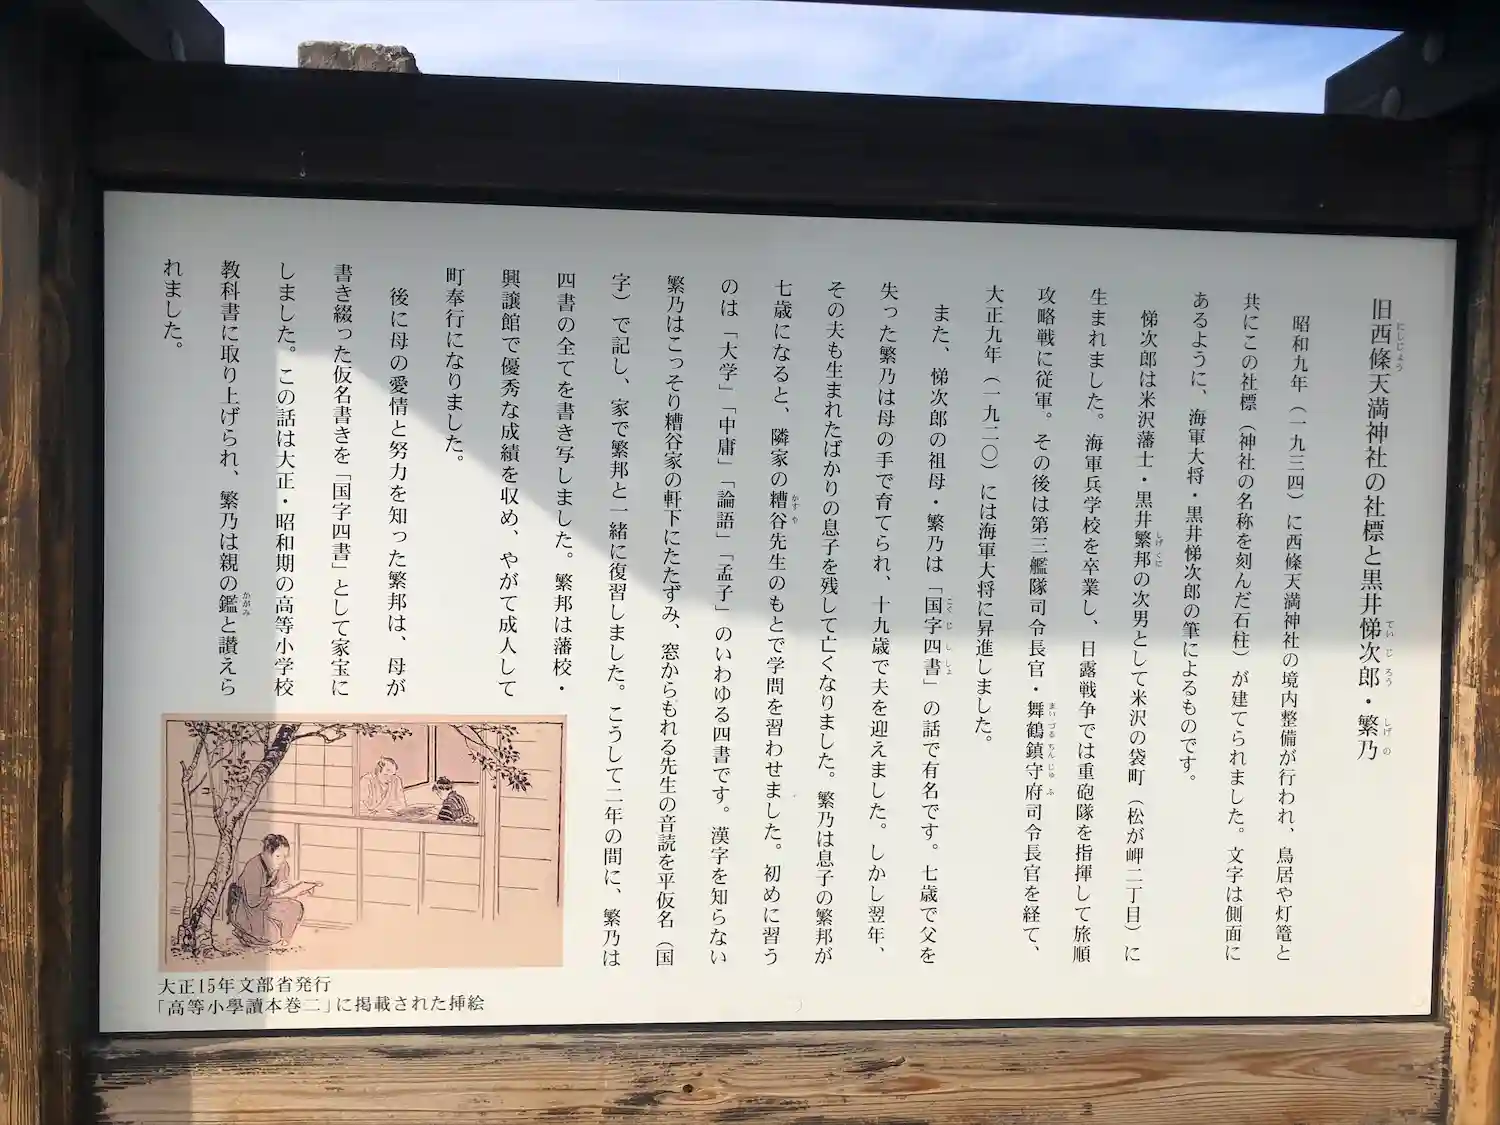 旧西條天満神社の社標と黒井悌次郎・繁乃
にしじょう
ていじろう
しげの
昭和九年（一九三四）に西條天満神社の境内整備が行われ、鳥居や灯篭と
共にこの社標（神社の名称を刻んだ石柱）が建てられました。文字は側面に
あるように、海軍大将・黒井悌次郎の筆によるものです。
悌次郎は米沢藩士・黒井繁邦の次男として米沢の袋町（松が岬二丁目）に
しげくに
生まれました。海軍兵学校を卒業し、日露戦争では重砲隊を指揮して旅順
攻略戦に従軍。その後は第三艦隊司令長官・舞鶴鎮守府司令長官を経て、
まいづるちんじゅふ
大正九年（一九二〇）には海軍大将に昇進しました。
また、悌次郎の祖母・繁乃は「国字四書」の話で有名です。七歳で父を
こくじししょ
失った繁乃は母の手で育てられ、十九歳で夫を迎えました。しかし翌年、
その夫も生まれたばかりの息子を残して亡くなりました。繁乃は息子の繁邦が
七歳になると、隣家の糟谷先生のもとで学問を習わせました。初めに習う
かすや
のは「大学」「中庸」「論語」「孟子」のいわゆる四書です。漢字を知らない
繁乃はこっそり糟谷家の軒下にたたずみ、窓からもれる先生の音読を平仮名（国
字）で記し、家で繁邦と一緒に復習しました。こうして二年の間に、繁乃は
四書の全てを書き写しました。繁邦は藩校・
興譲館で優秀な成績を収め、やがて成人して
町奉行になりました。
後に母の愛情と努力を知った繁邦は、母が
書き綴った仮名書きを「国字四書」として家宝に
しました。この話は大正・昭和期の高等小学校
教科書に取り上げられ、繁乃は親の鑑と讃えら
かがみ
れました。
大正15年文部省発行
「高等小學讀本巻二」に掲載された挿絵